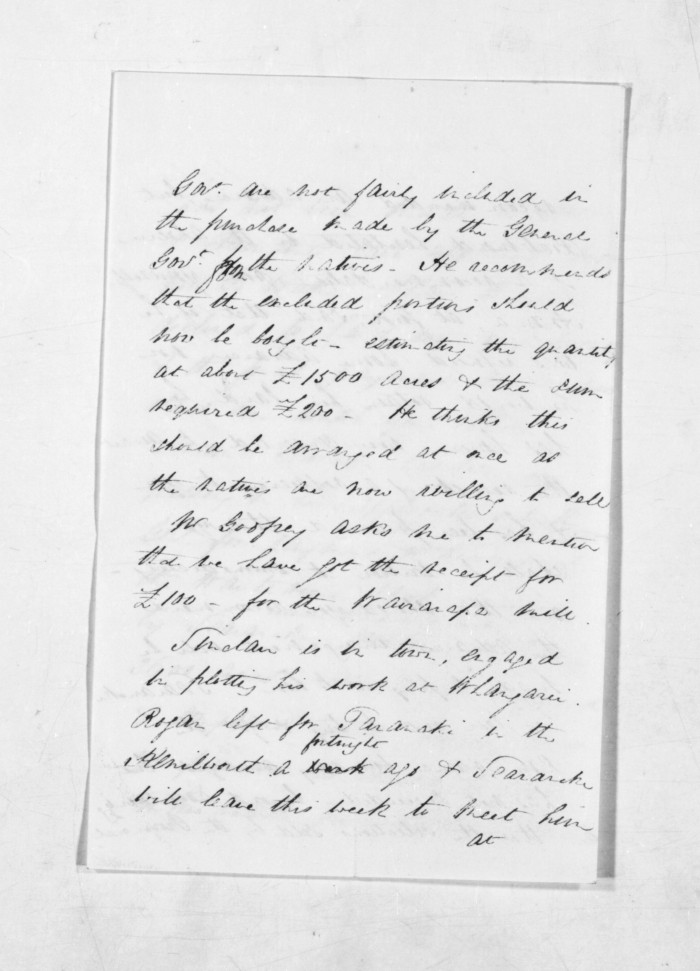 Gov.t are not fairly included in
the purchase made by the General
Gov.t from the natives - He recommends
that the excluded portions should
now be bought - estimating the quantity
at about £1500 acres & the sum
required £200 - He thinks this
should be arranged at once as
the natives are now willing to sell
Mr Godfrey asks me to mention
that we have got the receipt for
£100 - for the Wairarapa mill.
Sinclair is in town, engaged
in plotting his work at Whangarei.
Rogan left for Taranaki in the
fortnight
Kenilworth a week ago & Searancke
will leave this week to meet him
at